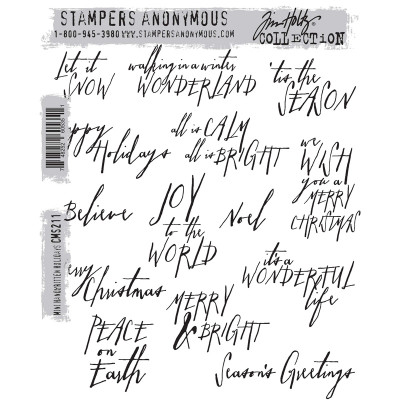 STAMPERS ANONYMOUS
1-800-945-3980 WWW.STAMPERSANONYMOUS.COM
Tim Holtz
COLLECTION
Let it
SNOW
walking in a winter
WONDERLAND
'tis the
SEASON
appy
Holidays
all is CALM
all is BRIGHT
we
WISH
you a
MERRY
CHRISTMAS
Believe
JOY
to the
WORLD
Noel
MINI HANDWRITTEN HOLIDAYS CMS211
erry
Christmas
MERRY
& BRIGHT
it's a
WONDERFUL
life
PEACE
on
Earth
Season's Greetings